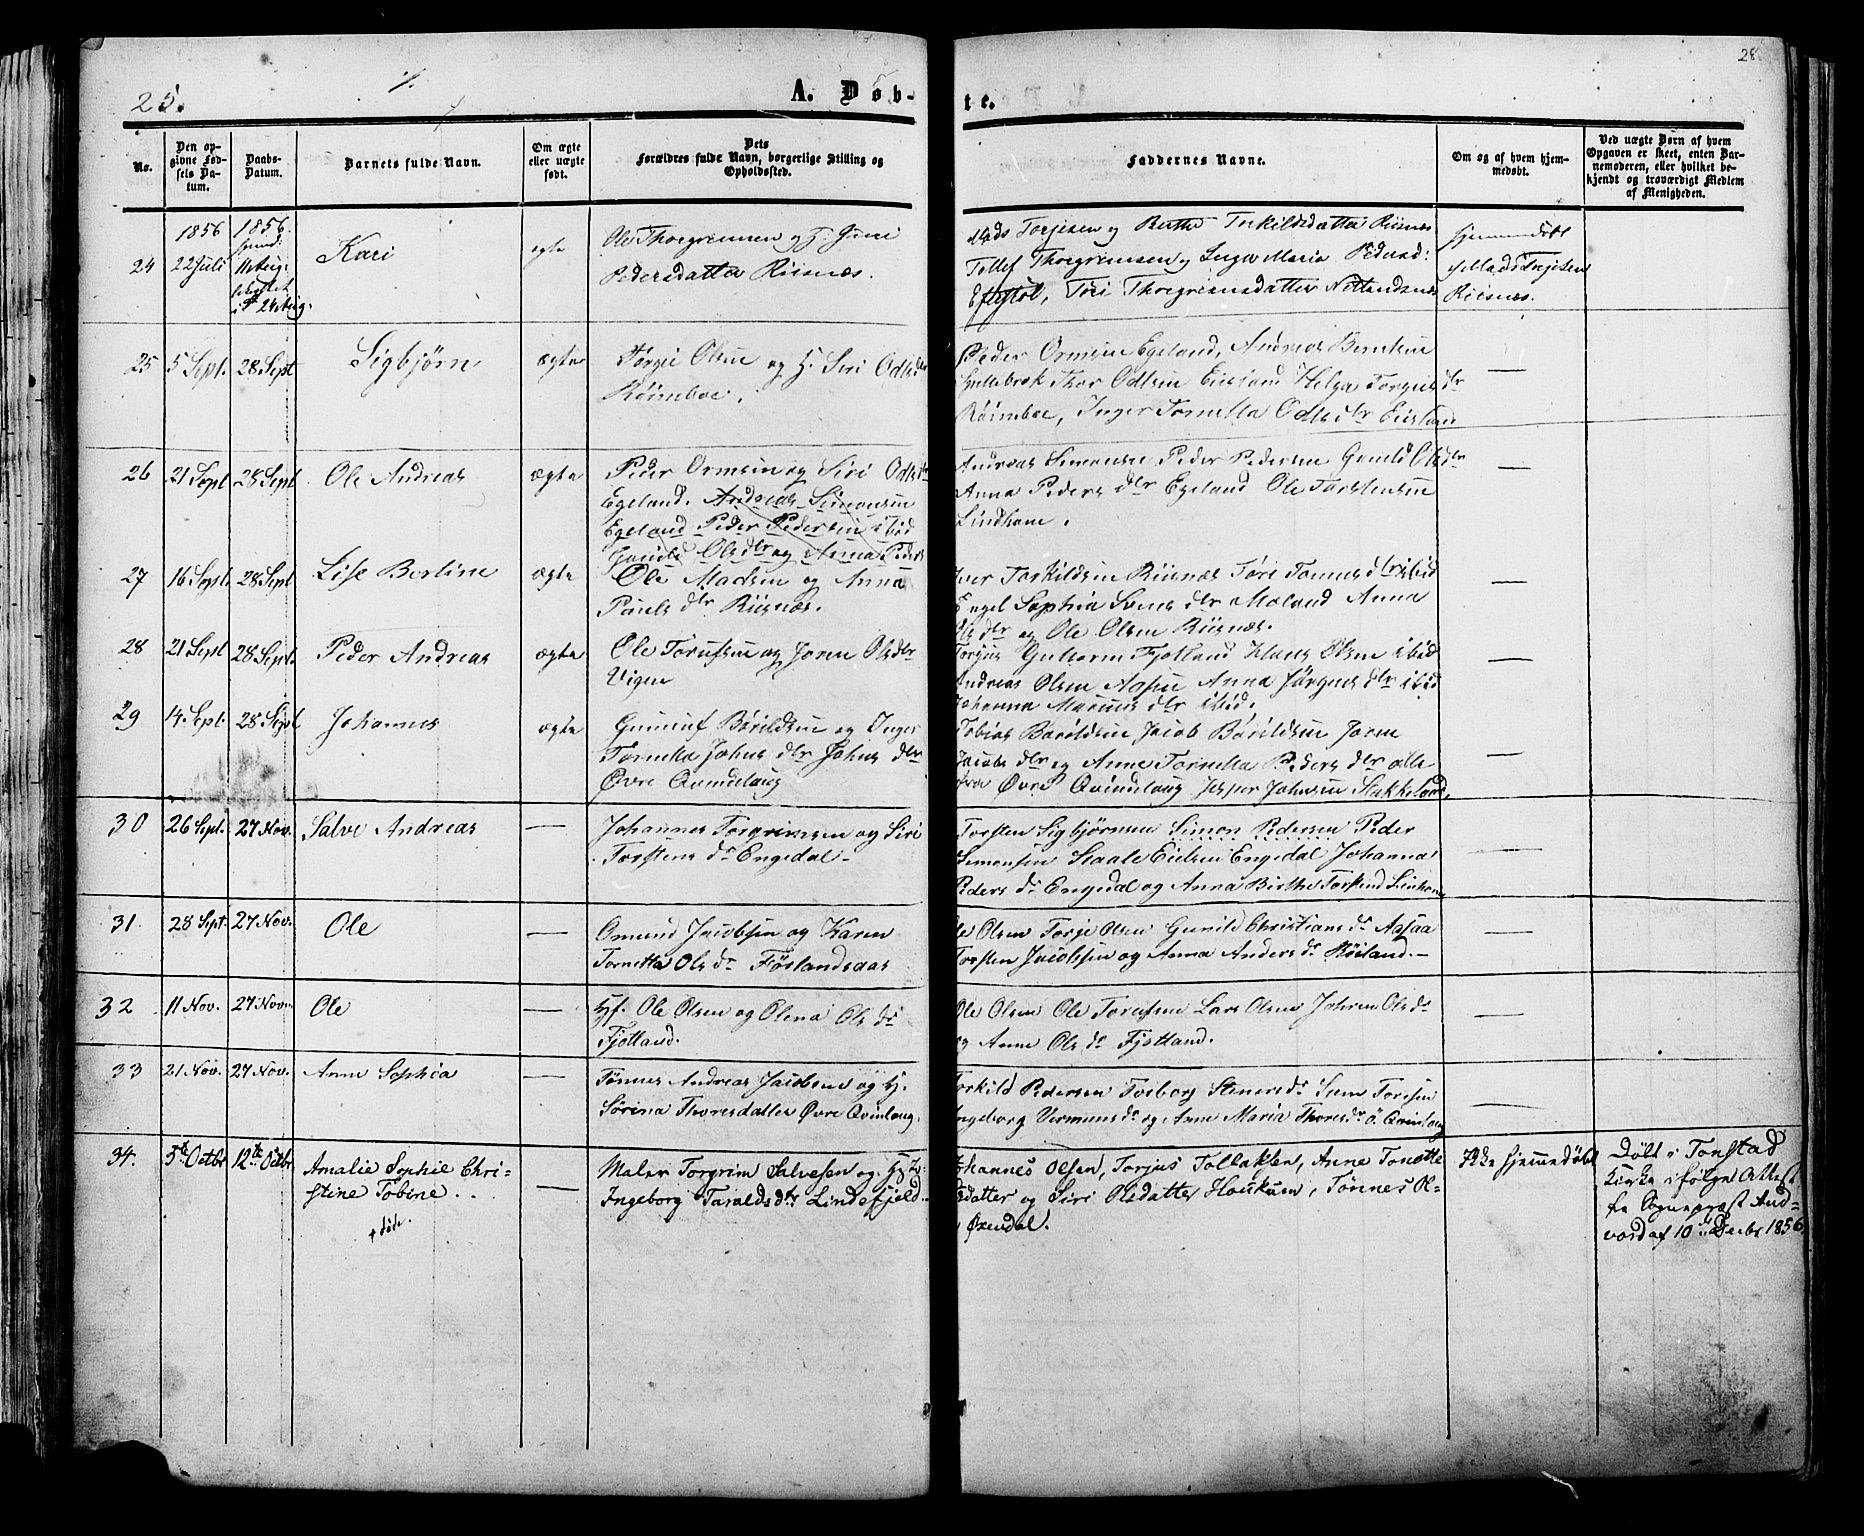 25.
A. Døb-
te.
28
No.
Den op-
givne Fød-
sels Da-
tum.
Daabs-
Datum.
Barnets fulde Navn.
Om ægte
eller uægte
født.
Dets
Forældres fulde Navn, borgerlige Stilling og
Opholdssted.
Faddernes Navne.
Om og af hvem hjem-
medøbt.
Ved uægte Børn af hvem
Opgaven er skeet, enten Bar-
nemoderen, eller hvilket be-
kjendt og troværdigt Medlem
af Menigheden.
24
1856
22 Juli
1856
11 Aug.
24 Aug.
Kari
egte
Ole Thorgrimsen og H. Guri
Pedersdatter Risnæs.
Mads Torjesen og Berthe Terkildsdatter Risnes
Tollef Thorgrimsen og Inger Maria Pedersd:
Eftestøl, Tori Thorgrimsdatter Netlandsnes
hjemmedøbt
Mads Terjesen
Risnæs.
25
5 Sept.
28 Sept
Sigbjørn
ægte
Torgie Olsen og H. Siri Odlsdtr
Röimboe.
Peder Ormsen Egeland, Andreas Berntsen
Thor Odlsen Eiesland Helga Torgiesdtr
Röimboe, Inger Tornetta Odlsdtr Eiesland
26
21 Sept
28 Sept
Ole Andreas
ægte
Peder Ormsen og Siri Odlsdtr
Egeland. Andreas Simonsen
Egeland Peder Pedersen ibid
Gunild Olsdtr og Anna Peders
Andreas Simonsen Peder Pedersen Gunild Olsdtr
Anna Pedersdtr Egeland Ole Torstensen
Lindham.
—
27
16 Sept.
28 Sept
Lise Bertine
ægte
Ole Madsen og Anna
Pauls dtr Riisnæs.
Iver Torkildsen Riisnæs Töri Tomas dtr ibid
Engel Sophia Svens dtr Moland Anna
Ols dtr og Ole Olsen Riisnæs.
—
28
21 Sept
28 Sept.
Peder Andreas
ægte
Ole Torufsen og Joren Olsdtr
Vigen
Torjus Guttorm Fjotland Klaus Olsen ibid
Andreas Olsen Aasen Anna Jörgens dtr ibid
Johanna Marius dtr ibid.
—
29
14. Sept.
28 Sept
Johannes
ægte
Gunuuf Bårildsen og Inger
Tornetta Johns dtr Johns dtr
Øvre Qvindelaug
Tobias Barildsen Jacob Bårildsen Joren
Jacobs dtr og Anne Tornetta Peders dtr alle
fra Øvre Qvindelaug Jesper Johnsen Stakkeland,
—
30
26 Sept.
27 Nov.
Salve Andreas
—
Johannes Torgrimsen og Siri
Torstens dr Engedal-
Torsten Sigbjørnsen Simon Pedersen Peder
Simonsen Staale Eielsen Engedal Johanna
Peders dr Engedal og Anna Birthe Torstend Linham
—
31.
28 Sept.
27 Nov.
Ole
—
Omund Jacobsen og Karen
Tornetta Ols dr Föslandsaas
Ole Olsen Torje Olsen Gunild Christians dr Aasaa
Torsten Jacobsen og Anna Anders dr Röiland.-
—
32
11 Nov.
27 Nov.
Ole
—
Hf. Ole Olsen og Olena Ols dr
Fjotland.
Ole Olsen Ole Torufsen Lars Olsen Johren Ols dr
og Anne Ols dr Fjotland.
—
33
21 Nov.
27 Nov.
Anne Sophia
—
Tønnes Andreas Jacobsen og H.
Sørina Thoresdatter Øvre Qvinlaug.
Torkild Pedersen Torborg Steners dr Sven Toresen
Ingeborg Vermunds dr og Anne Maria Thores dr Ö. Qvinlaug
—
34.
5te Octbr
12te Octbr
Amalie Sophie Chri-
stine Tobine . .
—
Maler Torgrim Salvesen og H:
Ingeborg Taralds dtr Lindefjeld.
Johannes Olsen, Torjus Tollaksen, Anne Tonette
datter og Siri Pedatter Houkum, Tønnes Ol-
Øxendal.
Ikke hjemmedøbt
Døbt i Tonstad
Kirke ifølge Attest
fra Sognepræst And-
vord af 10 Decbr 1856.